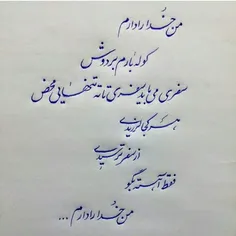 من خدا را دارم
کوله بارم بر دوش
سفری می باید سفری تا ته تنهایی محض
هر کجا لرزیدی
از سفر ترسیدی
فقط آهسته بگو
من خدا را دارم ...